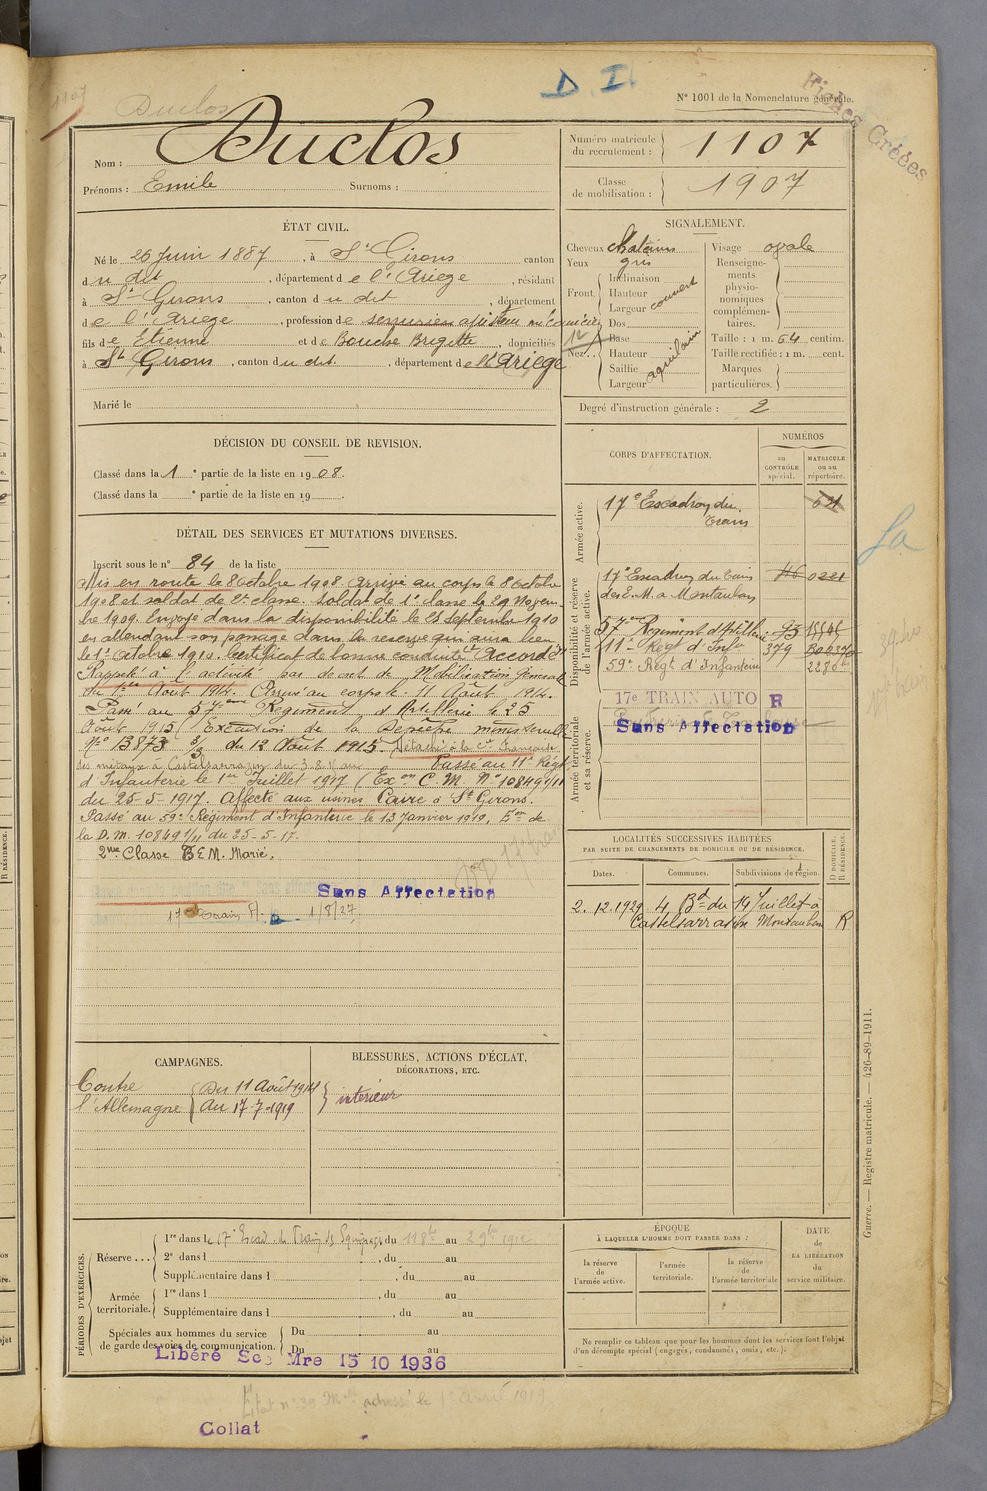 1107
Duclos
D. I.
N° 1001 de la Nomenclature générale.
Fiches Créées
Nom : Duclos
Prénoms : Emile Surnoms :
Numéro matricule du recrutement : 1107
Classe de mobilisation : 1907
ÉTAT CIVIL.
Né le 26 Juin 1887, à St Girons canton
du dit, département de l'Ariège, résidant
à St Girons, canton du dit, département
de l'Ariège, profession de serrurier ajusteur mécanicien
fils de Étienne et de Bouche Brigitte, domiciliés
à St Girons, canton du dit, département de l'Ariège
Marié le
SIGNALEMENT.
Cheveux chatains
Yeux gris
Front Inclinaison
Hauteur
Largeur couvert
Nez Dos
Base
Hauteur
Saillie
Largeur aquilain
12
Visage ovale
Renseignements physionomiques complémentaires.
Taille : 1 m. 64 centim.
Taille rectifiée : 1 m. cent.
Marques particulières.
Degré d'instruction générale : 2
DÉCISION DU CONSEIL DE REVISION.
Classé dans la 1e partie de la liste en 1908.
Classé dans la e partie de la liste en 19 .
DÉTAIL DES SERVICES ET MUTATIONS DIVERSES.
Inscrit sous le n° 84 de la liste
Mis en route le 8 Octobre 1908. Arrivé au corps le 8 Octobre
1908 et soldat de 2e classe. Soldat de 1e classe le 29 Novem
bre 1909. Envoyé dans la disponibilité le 25 Septembre 1910
en attendant son passage dans la reserve qui aura lieu
le 1er Octobre 1910. Certificat de bonne conduite "Accordé"
Rappelé à l'activité par decret de Mobilisation Général
du 1er Août 1914. Arrivé au corps le 11 Août 1914.
Passé au 57ème Regiment d'Artillerie le 25
Août 1915 (Exécution de la Depêche ministerielle
N° 13873 3/3 du 12 Août 1915. Détaché à la Cie Française
des métaux à Castelsarrazin du Passé au 11e Régt
d'Infanterie le 1er Juillet 1917 (Exon C. M. N° 10849 1/11
du 25-5-1917. Affecté aux usines Caire à St Girons.
Passé au 59e Régiment d'Infanterie le 13 Janvier 1919, Eon de
la D. M. 10849 1/11 du 25-5-17.
2me Classe B E M. Marié.
Sans Affectation
17e Train A. 1/8/27
CORPS D'AFFECTATION.
NUMÉROS
au CONTRÔLE spécial.
MATRICULE ou au répertoire.
Armée active.
17e Escadron du Train
621
Disponibilité et réserve de l'armée active.
17e Escadron du Train des E. M. à Montauban 46 0221
57ème Régiment d'Artillerie 93
11e Régt d'Infie 379
59e Régt d'Infanterie
Armée territoriale et sa réserve.
17e TRAIN AUTO R
Sans Affectation
LOCALITÉS SUCCESSIVES HABITÉES
PAR SUITE DE CHANGEMENTS DE DOMICILE OU DE RÉSIDENCE.
Dates. Communes. Subdivisions de région. D DOMICILE. R RÉSIDENCE.
2.12.1929 4, Bd du 14 Juillet à
Castelsarrasin Montauban R
CAMPAGNES.
Contre l'Allemagne
Du 11 Août 1914
Au 17-7-1919
BLESSURES, ACTIONS D'ÉCLAT,
DÉCORATIONS, ETC.
intérieur
PÉRIODES D'EXERCICES.
Réserve ... 1re dans le 17e Escad. du Train des Equipages, du 11 8bre au 2 9bre 1912
2e dans l , du au
Supplémentaire dans l , du au
Armée territoriale. 1re dans l , du au
Supplémentaire dans l , du au
Spéciales aux hommes du service de garde des voies de communication. Du au
Du au
Libéré Sce Mre 15 10 1936
ÉPOQUE
À LAQUELLE L'HOMME DOIT PASSER DANS :
la réserve de l'armée active.
l'armée territoriale.
la réserve de l'armée territoriale
DATE DE LA LIBÉRATION du service militaire.
Ne remplir ce tableau que pour les hommes dont les services font l'objet
d'un décompte spécial (engagés, condamnés, omis, etc.).
Guerre. — Registre matricule. — 426-89-1911.
Etat n° 39 adressé le 1er Avril 1919
Collat